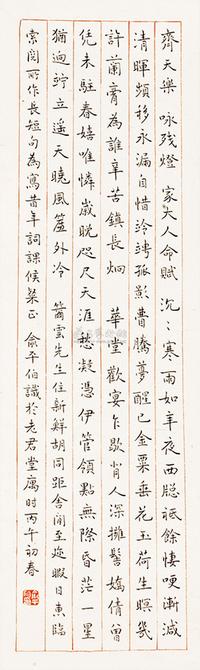 齊天樂 咏殘燈 家大人命賦 沉〻寒雨如年夜西窗祗餘悽哽漸減
清暉頻移永漏自惜泠竮孤影瞢騰夢醒已金粟垂花玉荷生暝幾
許蘭膏為誰辛苦鎮長炯 華堂歡宴乍歇背人深擁髻嬌倩曾
凭未駐春嬉唯憐歲晚咫尺天涯愁凝憑伊管領點無際昏茫一星
猶迥竚立遥天曉風簾外冷 箭雲先生住新鮮胡同距舍間至近暇日東臨
索閱所作長短句為寫昔年詞課候粲正 俞平伯識於老君堂寓时丙午初春